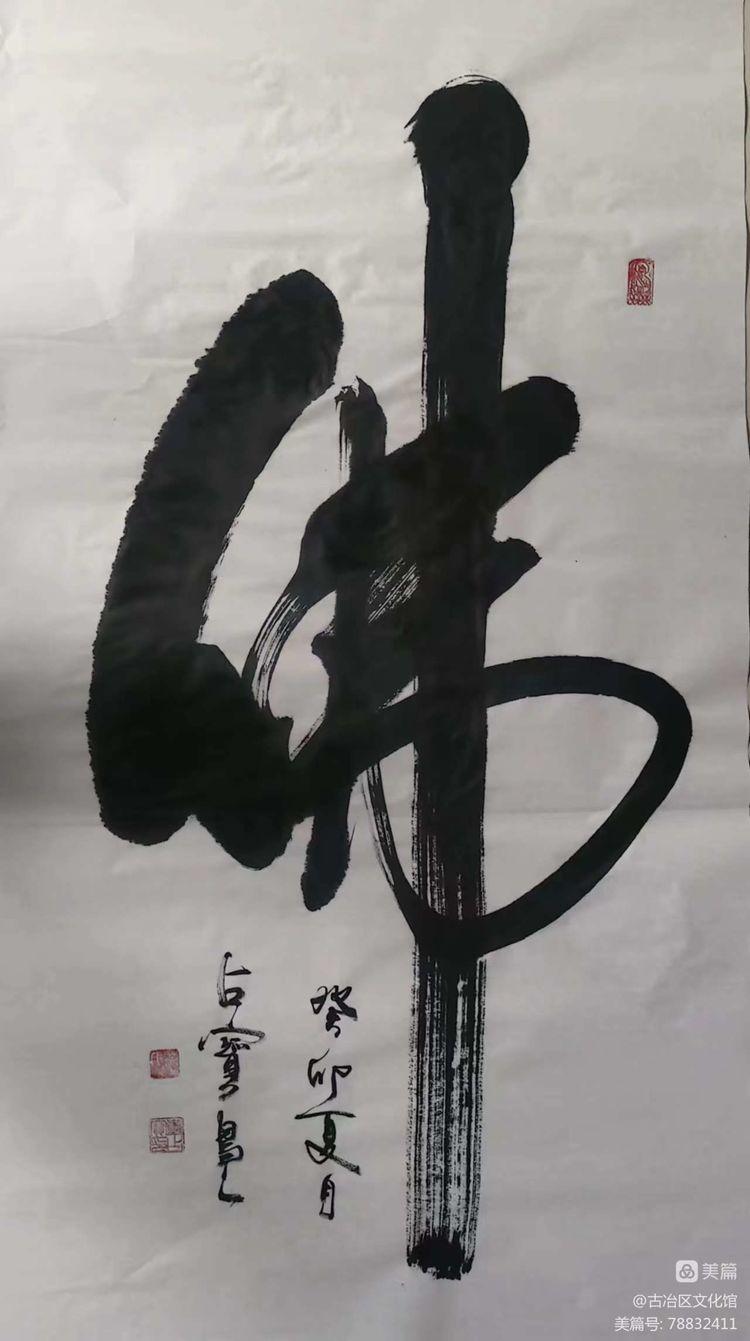 佛
癸卯夏月
占寶書
美篇
@古冶区文化馆
美篇号: 78832411